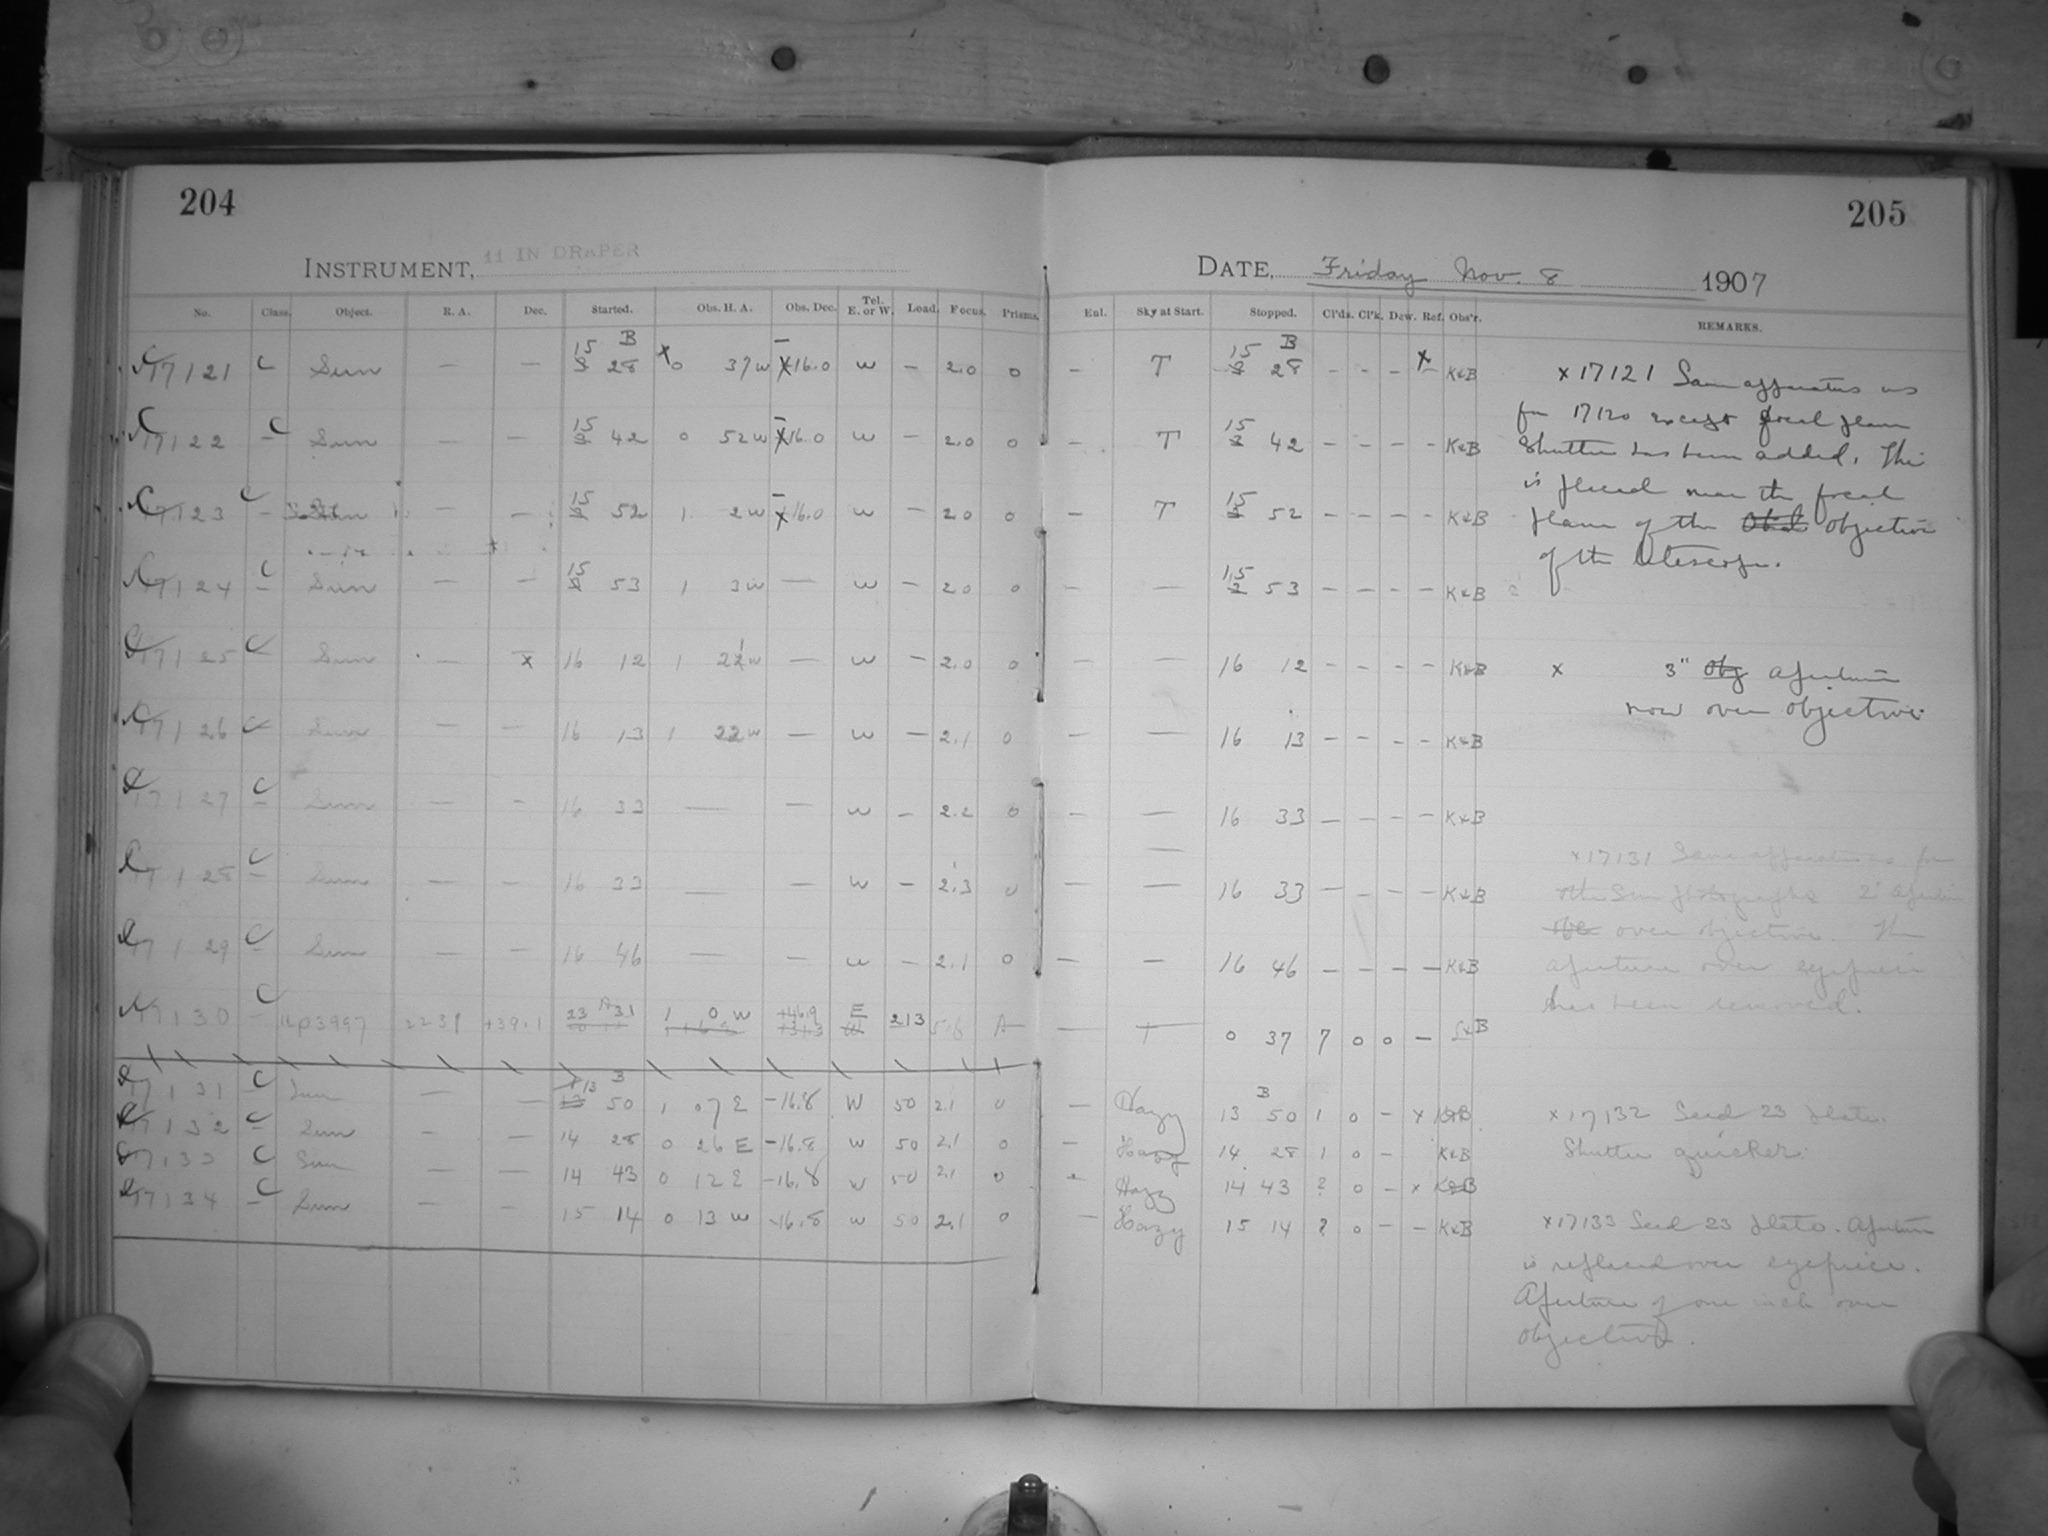 204
205
INSTRUMENT, 11 IN DRAPER
DATE, Friday Nov. 8 1907
No. Class. Object. R. A. Dec. Started. Obs. H. A. Obs. Dec. Tel. E. or W. Load. Focus. Prisms. Enl. Sky at Start. Stopped. Cl'ds. Cl'k. Dew. Ref. Obs'r. REMARKS.
C17121 C Sun — — 15 28 B x 0 37 w x̄ 16.0 w — 2.0 0 — T 15 28 B — — — x K&B
C17122 C Sun — — 15 42 0 52 w x̄ 16.0 w — 2.0 0 — T 15 42 — — — — K&B
C17123 C Sun — — 15 52 1 2 w x̄ 16.0 w — 2.0 0 — T 15 52 — — — — K&B
C17124 C Sun — — 15 53 1 3 w — w — 2.0 0 — — 15 53 — — — — K&B
C17125 C Sun — x 16 12 1 22 w — w — 2.0 0 — — 16 12 — — — — K&B
C17126 C Sun — — 16 13 1 22 w — w — 2.1 0 — — 16 13 — — — — K&B
C17127 C Sun — — 16 33 — — w — 2.2 0 — — 16 33 — — — — K&B
C17128 C Sun — — 16 33 — — w — 2.3 0 — — 16 33 — — — — K&B
C17129 C Sun — — 16 46 — — w — 2.1 0 — — 16 46 — — — — K&B
C17130 C 3997 22 39 +39.1 23 31 1 0 w +46.9 E 213 5.6 A — T 0 37 7 0 0 —
C17131 C Sun — — 13 50 B 1 07 E -16.8 W 50 2.1 0 — Hazy 13 50 B 1 0 — x K&B
C17132 C Sun — — 14 28 0 26 E -16.8 w 50 2.1 0 — Hazy 14 28 1 0 — K&B
C17133 C Sun — — 14 43 0 12 E -16.8 w 50 2.1 0 — Hazy 14 43 2 0 — x K&B
C17134 C Sun — — 15 14 0 13 w -16.8 w 50 2.1 0 — Hazy 15 14 2 0 — — K&B
x 17121 Same apparatus as
for 17120 except focal plane
Shutter has been added. This
is placed near the focal
plane of the Objective
of the telescope.
x 3" Obj Aperture
now over objective
x 17131 Same apparatus as for
other Sun photographs 2" Aperture
over objective. The
aperture over eyepiece
has been removed.
x 17132 Seed 23 plate.
Shutter quicker.
x 17133 Seed 23 plate. Aperture
is replaced over eyepiece.
Aperture of one inch over
objective.